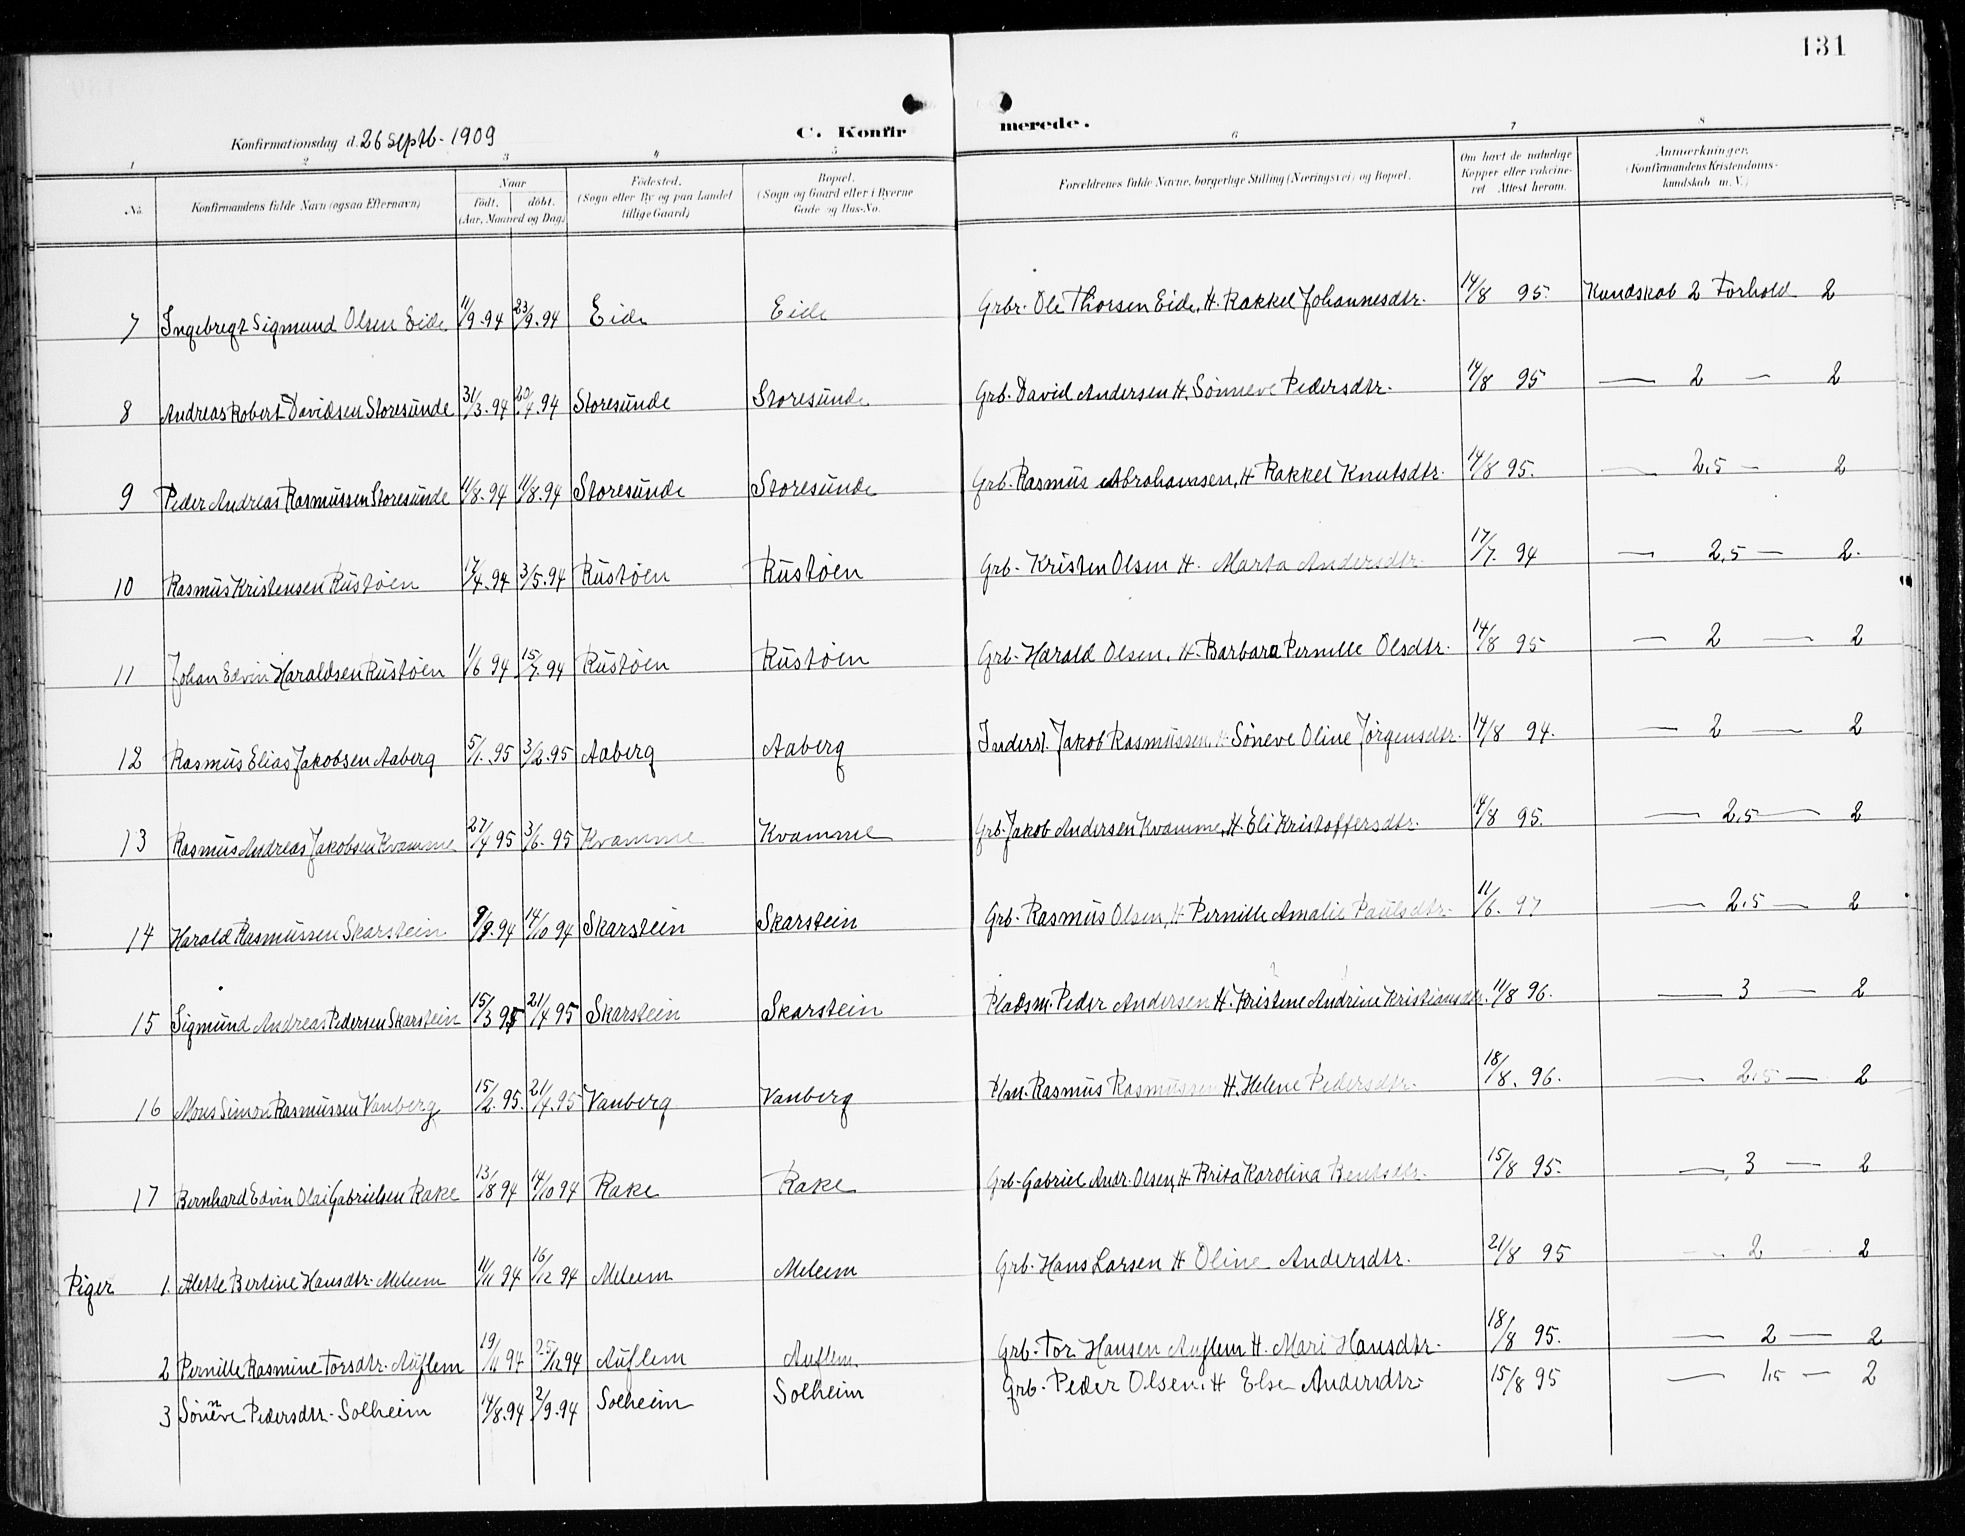 131
C. Konfirmerede.
Konfirmationsdag d. 26 Septb. 1909
1 2 3 4 5 6 7 8
No. Konfirmandens fulde Navn (ogsaa Efternavn) Naar født. døbt. (Aar, Maaned og Dag.) Fødested. (Sogn eller By og paa Landet tillige Gaard) Bopæl. (Sogn og Gaard eller i Byerne Gade og Hus-No. Forældrenes fulde Navne, borgerlige Stilling (Næringsvei) og Bopæl. Om havt de naturlige Kopper eller vakcineret. Attest herom. Anmærkninger. (Konfirmandens Kristendomskundskab m. V.)
7 Ingebregt Sigmund Olsen Eide 11/9.94 23/9.94 Eide Eide Grbr. Ole Thorsen Eide, H. Rakkel Johannesdtr. 14/8 95. Kundskab 2 Forhold 2
8 Andreas Robert Davidsen Storesunde 31/3.94 20/4.94 Storesunde Storesunde Grb. David Andersen H. Sönneve Pedersdtr. 14/8 95 — 2 — 2
9 Peder Andreas Rasmussen Storesunde 11/8.94 11/8.94 Storesunde Storesunde Grb. Rasmus Abrahamsen, H Rakkel Knutsdtr. 14/8 95. — 2,5 — 2
10 Rasmus Kristensen Rustöen 17/4.94 3/5.94 Rustöen Rustöen Grb. Kristen Olsen H. Marta Andersdtr. 17/7. 94 — 2,5 — 2.
11 Johan Edvin Haraldsen Rustöen 1/6 94 15/7.94 Rustöen Rustöen Grb. Harald Olsen. H. Barbara Pernille Olsdtr. 14/8 95 — 2 — 2
12 Rasmus Elias Jakobsen Aaberg 5/1.95 3/2.95 Aaberg Aaberg Inderst. Jakob Rasmussen, H. Söneve Oline Jörgensdtr. 14/8 94. — 2 — 2
13 Rasmus Andreas Jakobsen Kvamme 27/4 95 3/6.95 Kvamme Kvamme Grb. Jakob Andersen Kvamme, H. Eli Kristoffersdtr. 14/8 95. — 2,5 — 2
14 Harald Rasmussen Skarstein 9/9.94 14/10 94 Skarstein Skarstein Grb. Rasmus Olsen, H Pernille Amalie Paulsdtr. 11/6. 97 — 2,5 — 2
15 Sigmund Andreas Pedersen Skarstein 15/3 95 21/4 95 Skarstein Skarstein Pladsm. Peder Andersen H. Kristine Andrine Kristiansdtr. 11/8 96. — 3 — 2
16 Mons Simon Rasmussen Vanberg 15/2.95. 21/4.95 Vanberg Vanberg Plm. Rasmus Rasmussen H. Helene Pedersdtr. 18/8. 96. — 2,5 — 2
17 Bernhard Edvin Olai Gabrielsen Rake 13/8 94 14/10 94 Rake Rake Grb. Gabriel Andr. Olsen, H. Brita Karolina Bentsdtr. 15/8 95. — 3 — 2
Piger 1. Alette Bertine Hansdtr. Meleem 11/11 94 16/12 94 Meleem Meleem Grb. Hans Larsen H Oline Andersdtr. 21/8 95 — 2 — 2
2 Pernille Rasmine Torsdtr. Auflem 19/11 94 25/12 94 Auflem Auflem Grb. Tor Hansen Auflem H. Mari Hansdtr. 18/8 95. — 2 — 2
3 Sönneve Pedersdtr. Solheim 14/8.94 2/9.94 Solheim Solheim Grb. Peder Olsen. H Else Andersdtr. 15/8 95 — 1,5 — 2